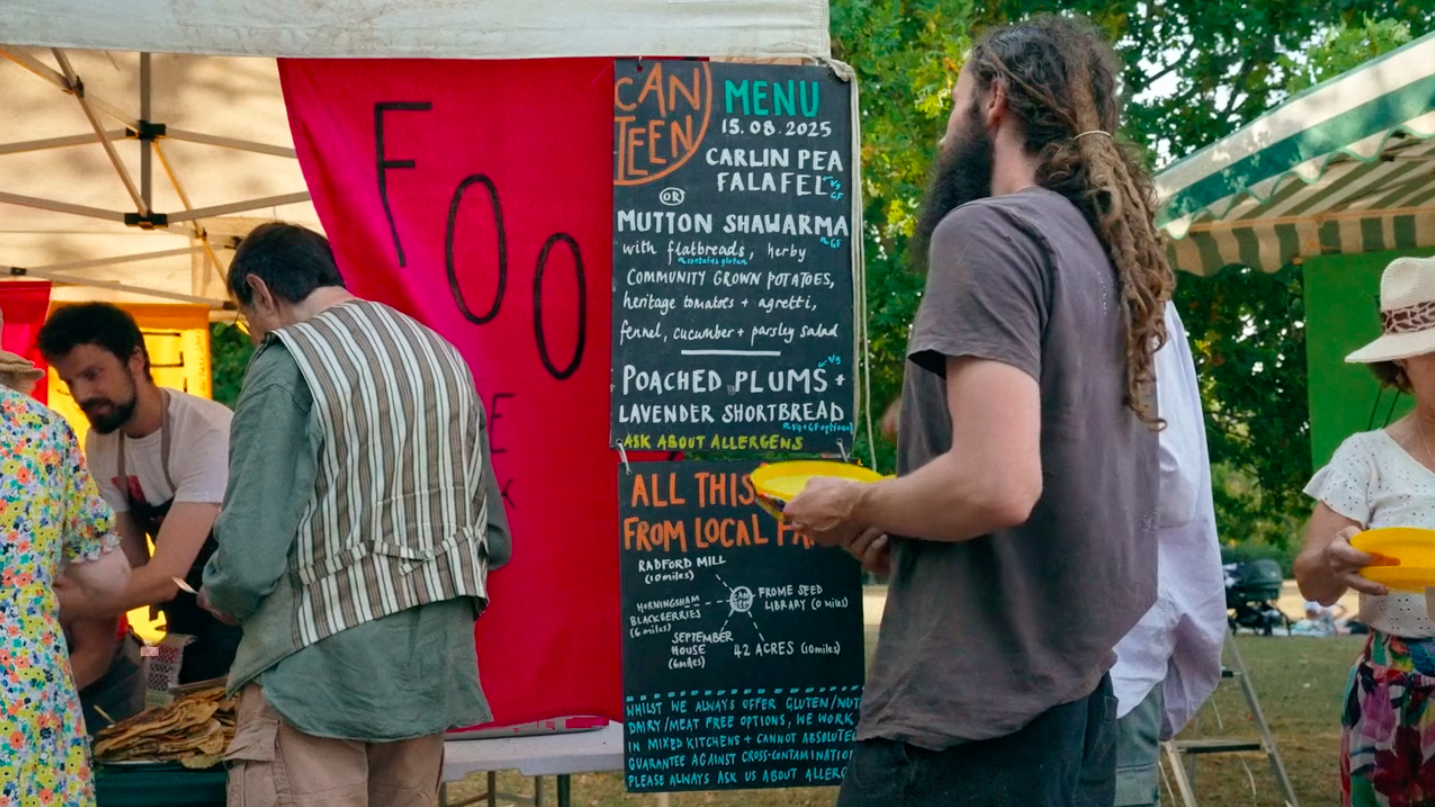 FOO
E
K
CAN
TEEN
MENU
15.08.2025
CARLIN PEA
FALAFEL Vg GF
OR
MUTTON SHAWARMA
GF
with flatbreads, herby
contains gluten
COMMUNITY GROWN POTATOES,
heritage tomatoes + agretti,
fennel, cucumber + parsley salad
Vg
POACHED PLUMS +
LAVENDER SHORTBREAD
Vg + GF optional
ASK ABOUT ALLERGENS
ALL THIS
FROM LOCAL
RADFORD MILL
(10 miles)
HORNINGSHAM
BLACKBERRIES
(6 miles)
CAN
TEEN
FROME SEED
LIBRARY (0 miles)
SEPTEMBER
HOUSE
(6 miles)
42 ACRES (10 miles)
WHILST WE ALWAYS OFFER GLUTEN/NUT
DAIRY/MEAT FREE OPTIONS, WE WORK
IN MIXED KITCHENS + CANNOT ABSOLUTE
GUARANTEE AGAINST CROSS-CONTAMINATION
PLEASE ALWAYS ASK US ABOUT ALLERG